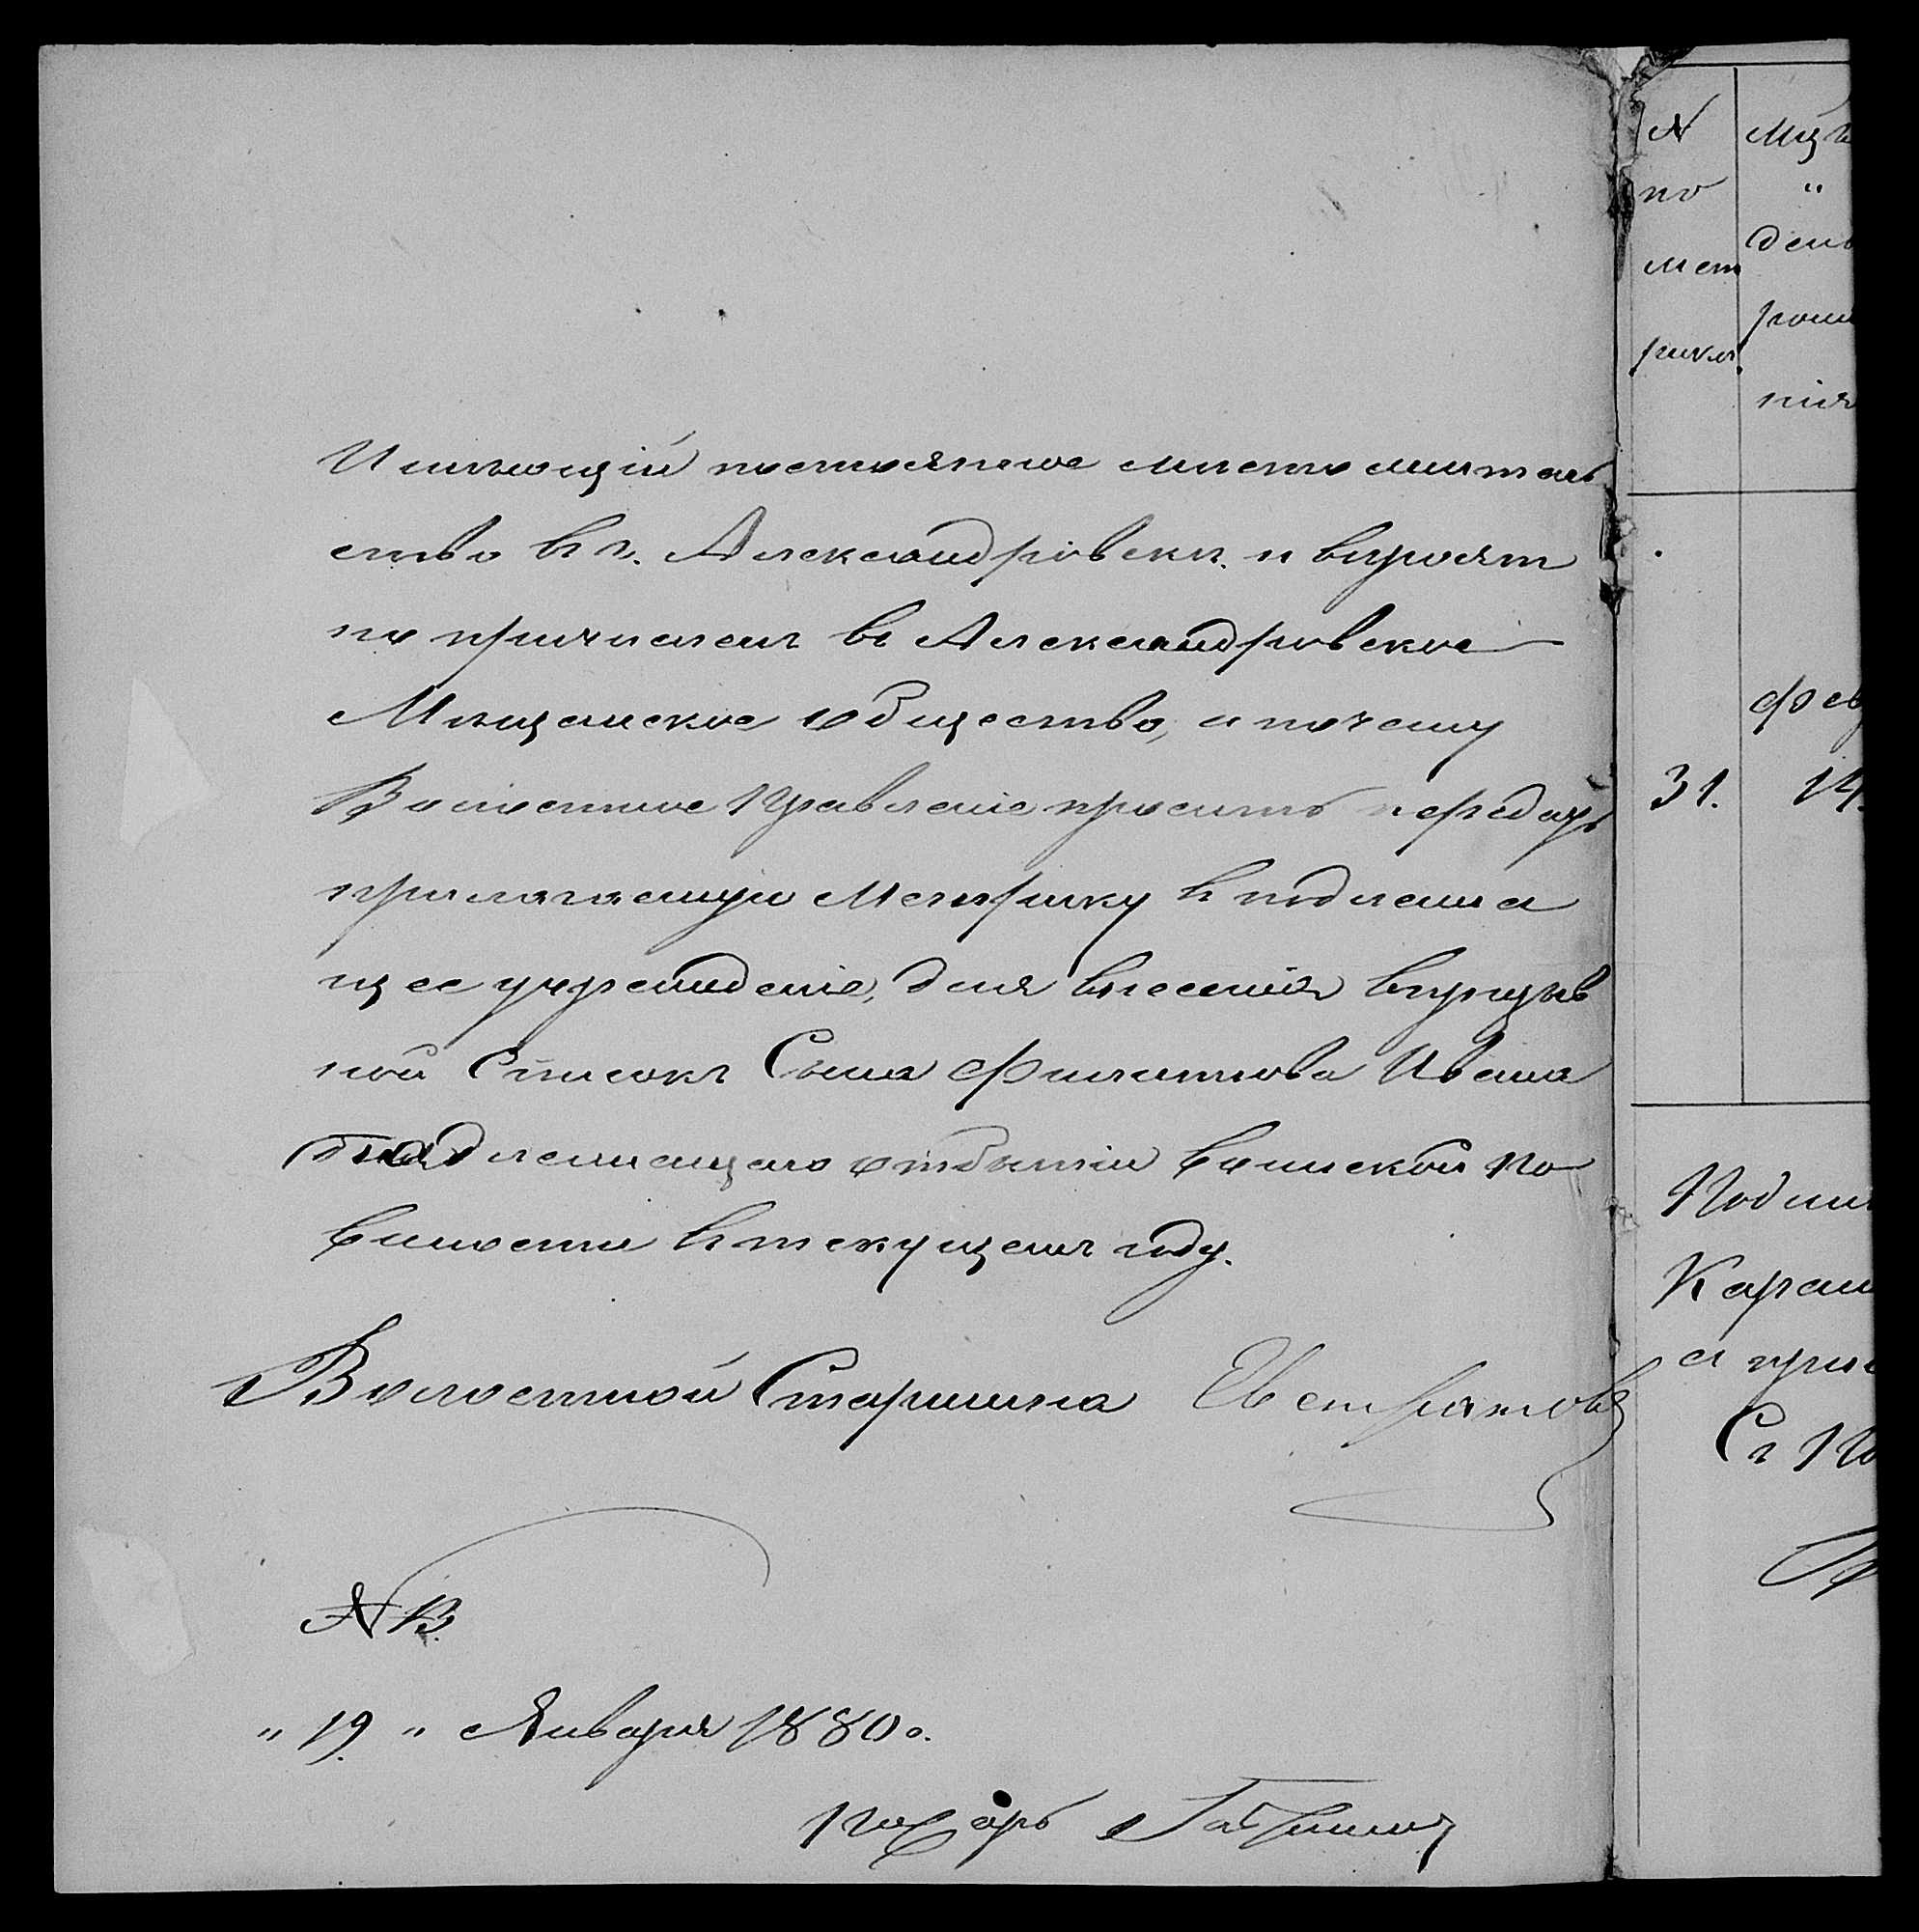 Имѣющій постоянное мѣсто житель
ство въ г. Александровскѣ и вѣроят
но причисленъ въ Александровское
Мѣщанское общество, а почему
Волостное Правленіе проситъ передать
прилагаемую Метрику въ подлежа
щее учрежденіе, для внесенія въ призыв
ной Списокъ Сына Филиппова Ивана
подлежащаго отбытію воинской по
винности въ текущемъ году.
Волостной Старшина Евстратовъ
N 13.
" 19. " Января 1880 г.
Писарь
N
по
мет
рикѣ.
Мѣ
"
день
рож
нія
31.
Фев
14.
Подли
Съ По